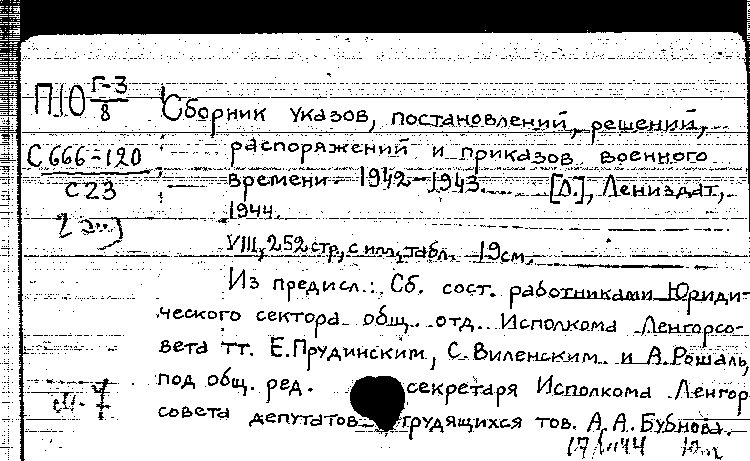 П10 Г-3/8
С666-120
С23
2 экз
Сборник указов, постановлений, решений,
распоряжений и приказов военного
времени. 1942-1943. [Л.], Лениздат,
1944.
VIII, 252 стр, с илл, табл. 19см.
Из предисл.: Сб. сост. работниками Юриди-
ческого сектора общ. отд. Исполкома Ленгорсо-
вета тт. Е.Прудинским, С.Виленским и А.Рошаль,
под общ. ред. секретаря Исполкома Ленгор
совета депутатов трудящихся тов. А.А.Бубнова.